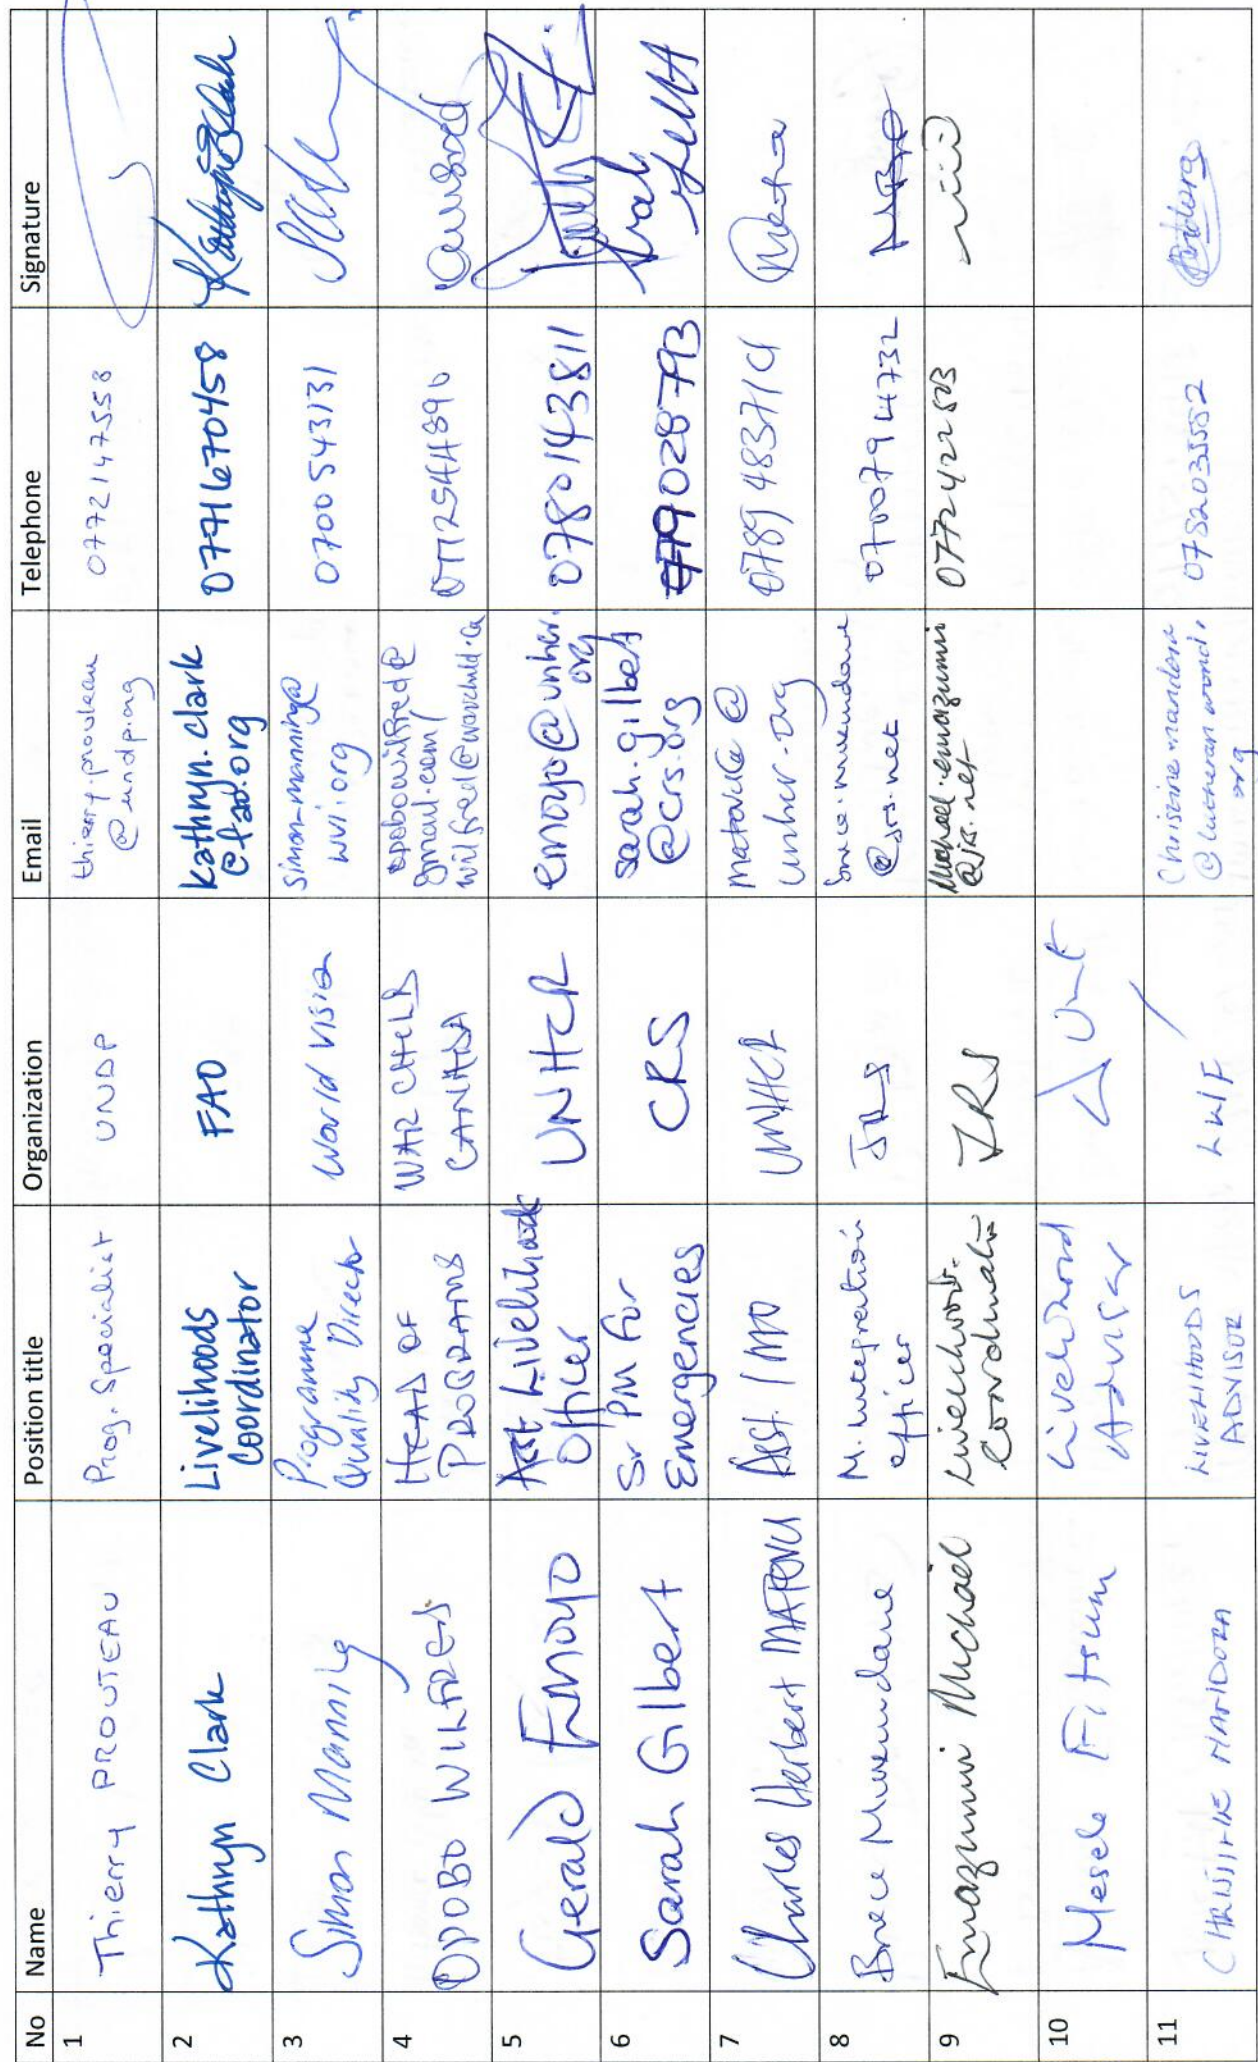 No Name Position title Organization Email Telephone Signature
1 Thierry PROUTEAU Prog. Specialist UNDP thierry.prouteau
@undp.org 0772147558
2 Kathryn Clark Livelihoods
Coordinator FAO kathryn.clark
@fao.org 0771670458
3 Simon Manning Programme
Quality Director World Vision simon-manning@
wvi.org 0700543131
4 OPOBO WILFRED HEAD OF
PROGRAMS WAR CHILD
CANADA opobowilfred@
gmail.com/
wilfred@warchild.ca
5 Gerald Emoyo Asst Livelihood
Officer UNHCR emoyo@unhcr.
org 0780143811
6 Sarah Gilbert Sr PM for
Emergencies CRS sarah.gilbert
@crs.org 0779028793
7 Charles Herbert Asst. IMO UNHCR @
unhcr.org
8 M. Integration
officer JRS
@jrs.net
9 Emazimin Michael Livelihoods
Coordinator JRS Michael.emazimin
@jrs.net
10 Mesele Fitsum Livelihood
Advisor
11 CHRISTINE MANDORA LIVELIHOODS
ADVISOR LWF Christine.mandora
@lutheranworld.
org